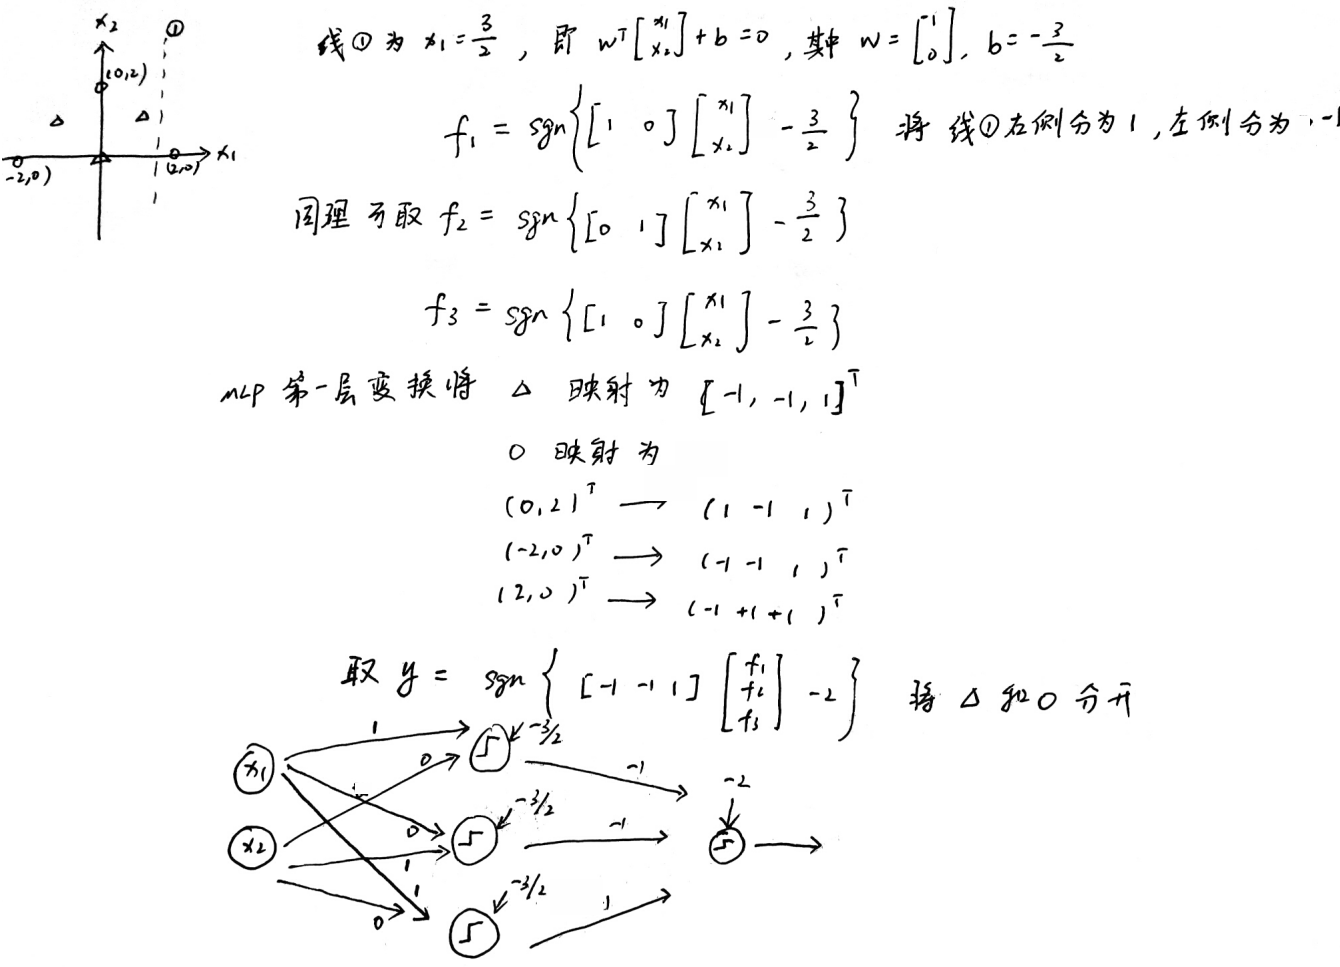 x₂
①
(0,2)
x₁
-2,0)
(2,0)
线①为 x₁ = 3/2 , 即 wᵀ[x₁ x₂] + b = 0 , 其中 w = [-1 0], b = -3/2
f₁ = sgn{[1 0][x₁ x₂] - 3/2} 将线①右侧分为1,左侧分为-1
同理可取 f₂ = sgn{[0 1][x₁ x₂] - 3/2}
f₃ = sgn{[1 0][x₁ x₂] - 3/2}
MLP 第一层变换将 △ 映射为 [-1, -1, 1]ᵀ
O 映射为
(0,2)ᵀ → (1 -1 1)ᵀ
(-2,0)ᵀ → (-1 -1 1)ᵀ
(2,0)ᵀ → (-1 +1 +1)ᵀ
取 y = sgn{[-1 -1 1][f₁ f₂ f₃] - 2} 将 △ 和 O 分开
x₁
1
0
-3/2
-1
-2
x₂
0
1
-3/2
-1
0
1
-3/2
1